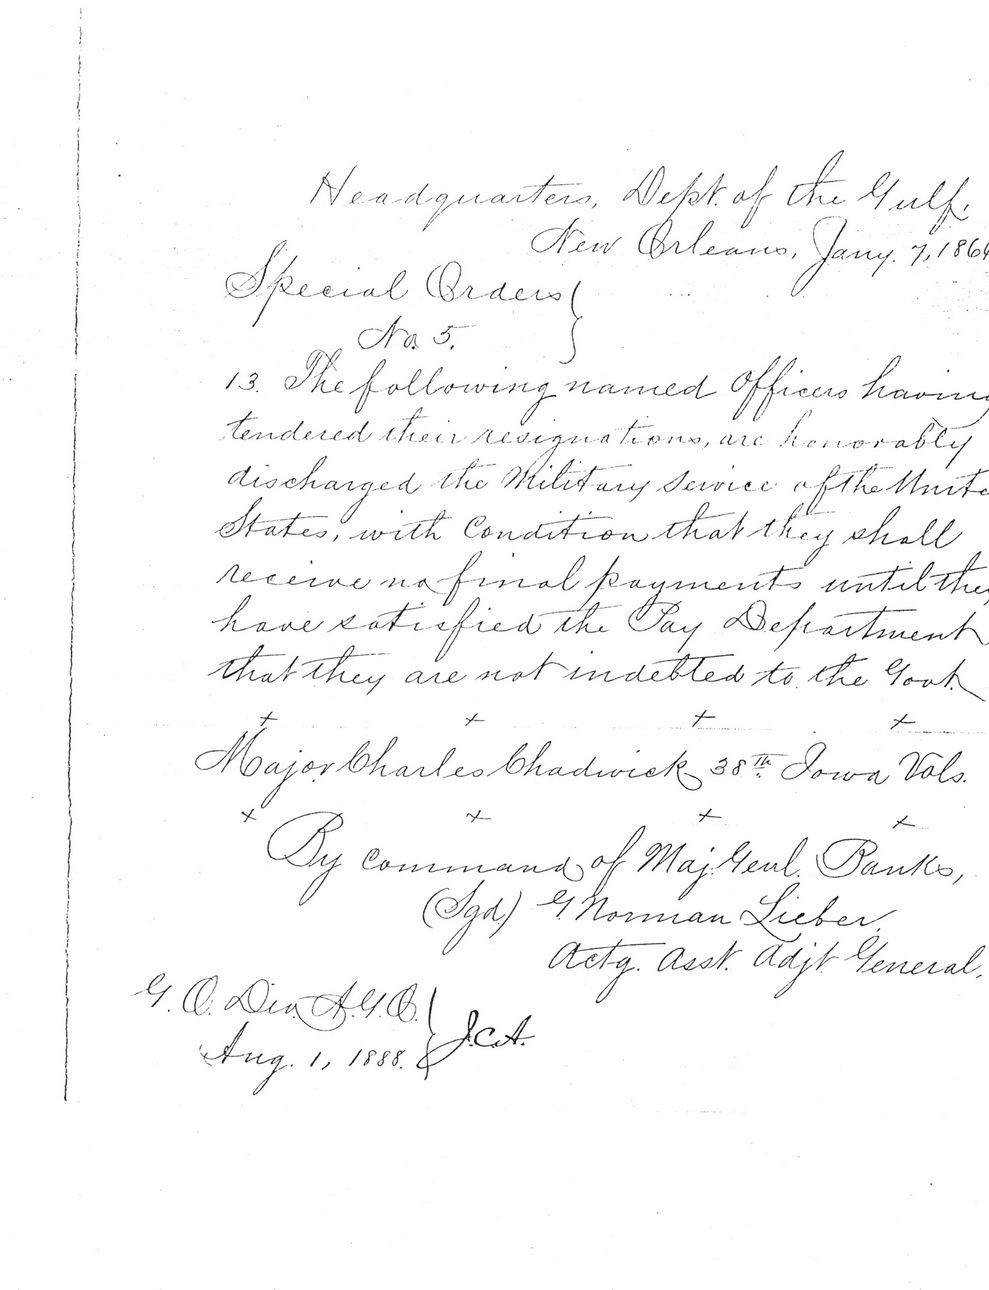 Headquarters, Dept. of the Gulf,
New Orleans, Jany. 7, 1864
Special Orders }
No. 5.
13. The following named Officers having
tendered their resignations, are honorably
discharged the Military Service of the Unite
States, with Condition that they shall
receive no final payments until they
have satisfied the Pay Department
that they are not indebted to the Govt.
+ + + +
Major Charles Chadwick 38th. Iowa Vols.
+ + + +
By command of Maj. Genl. Banks,
(Sgd.) G Norman Lieber,
Actg. Asst. Adjt. General.
G. O. Div. A.G.O. } J.C.A.
Aug. 1, 1888.